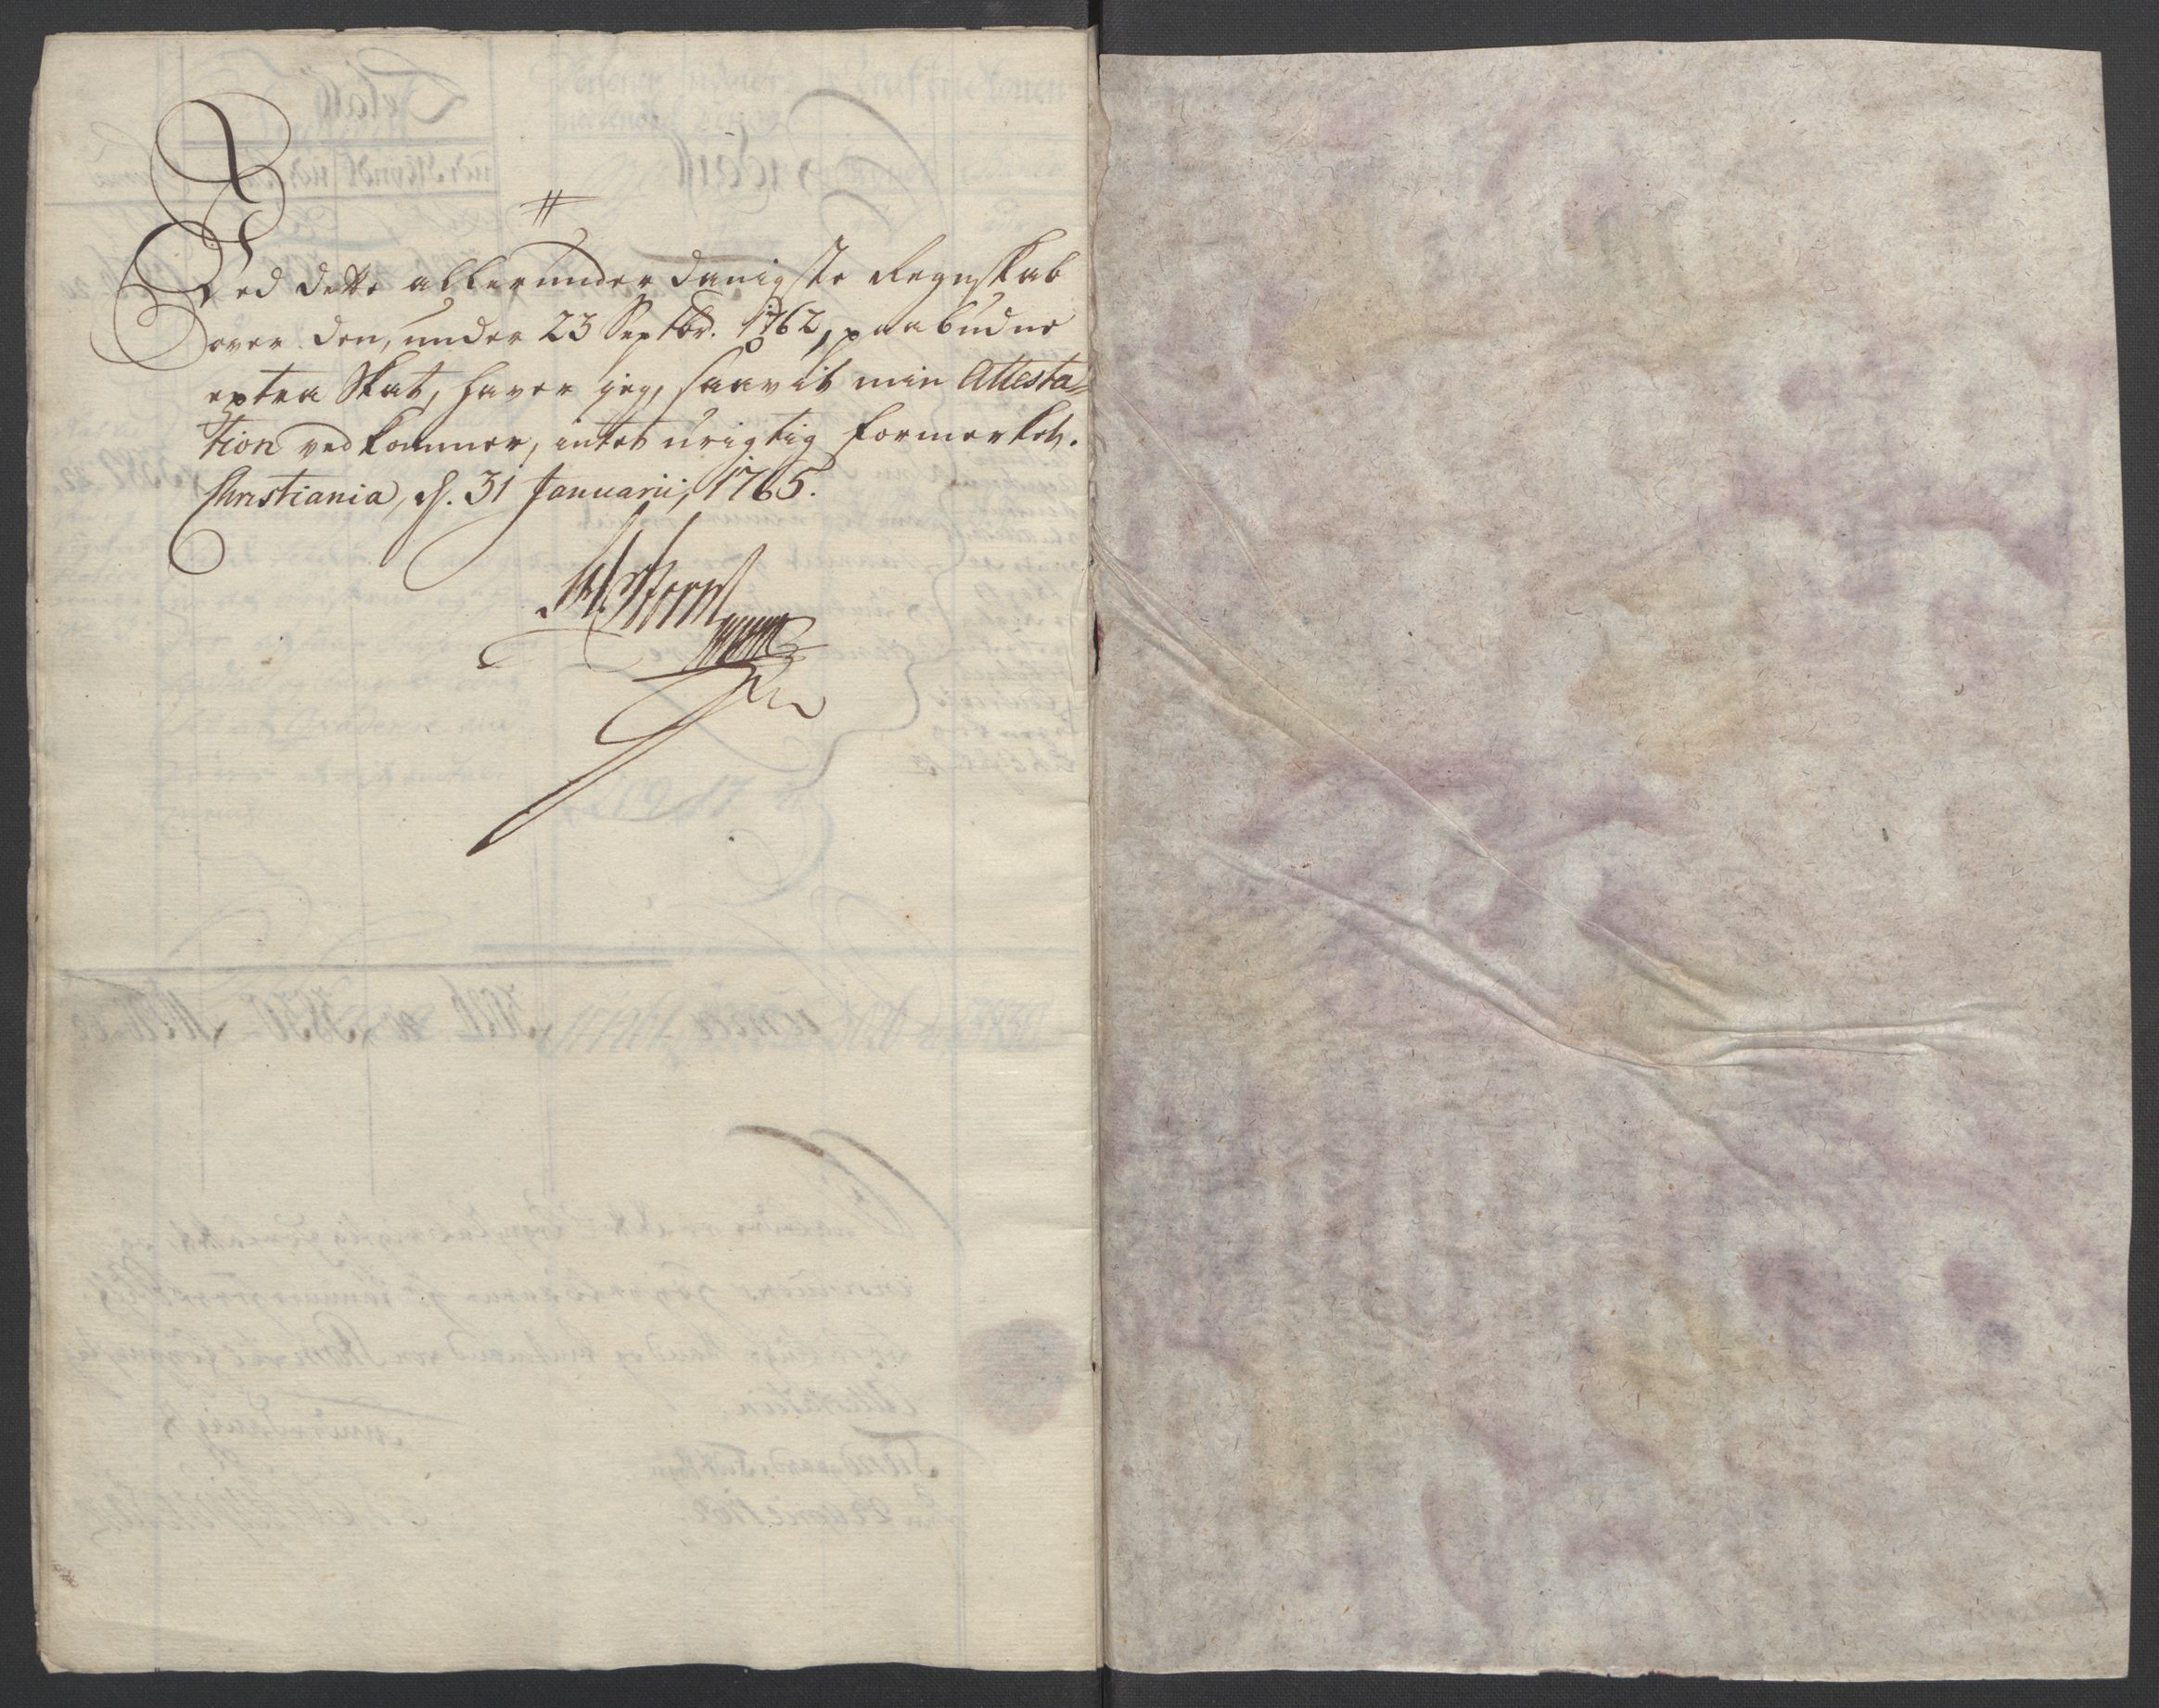 #
Ved dette allerunderdanigste Regnskab
over den, under 23 Septbr. 1762, paabudne
extra Skat, haver jeg, saavit min Attesta=
tion vedkommer, intet urigtig formerket.
Christiania, d. 31 Januarii, 1765.
Storm